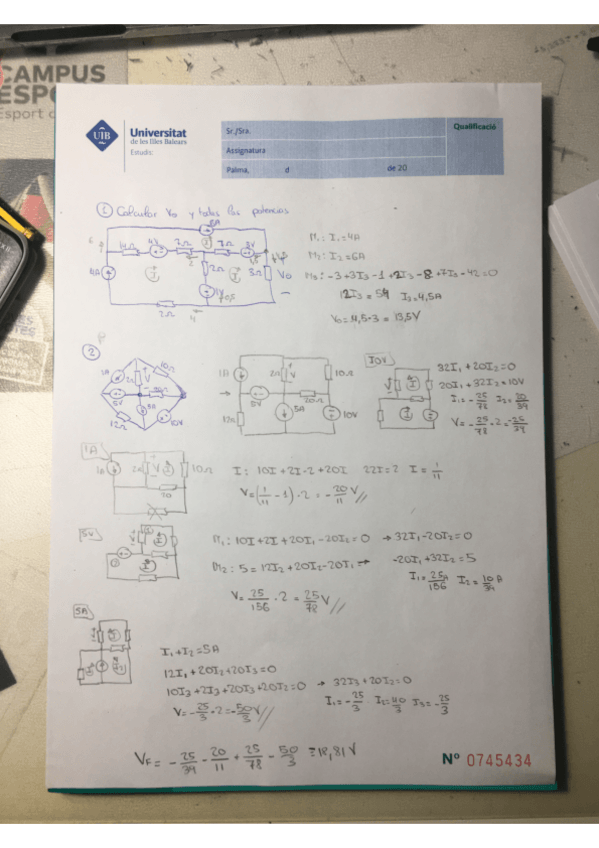 CAMPUS
ESPO
Esport
UIB
Universitat
de les Illes Balears
Estudis:
Sr./Sra.
Assignatura
Palma, d de 20
Qualificació
① Calcular Vo y todas las potencias
M₁: I₁=4A
M₂: I₂=6A
M₃: -3+3I₃-1+2I₃-8+7I₃-42=0
12I₃=54 I₃=4,5A
Vo=4,5·3=13,5V
4A
14Ω
4V
2Ω
6A
7Ω
8V
2Ω
3Ω
Vo
2Ω
②
1A
2Ω
V
10Ω
20Ω
5V
5A
12Ω
10V
1A
2Ω
V
10Ω
5V
20Ω
12Ω
5A
10V
10V
32I₁+20I₂=0
20I₁+32I₂=10V
I₁=-25/78 I₂=20/39
V=-25/78·2=-25/39
1A
1A
2Ω
V
10Ω
20
I: 10I+2I-2+20I 22I=2 I=1/11
V=(1/11-1)·2=-20/11 V//
5V
M₁: 10I+2I+20I₁-20I₂=0 → 32I₁-20I₂=0
M₂: 5=12I₂+20I₂-20I₁ → -20I₁+32I₂=5
I₁=25/156 A I₂=10/39 A
V=25/156·2=25/78 V//
5A
I₁+I₂=5A
12I₁+20I₂+20I₃=0
10I₃+2I₃+20I₃+20I₂=0 → 32I₃+20I₂=0
I₁=-25/3 I₂=40/3 I₃=-25/3
V=-25/3·2=-50/3 V//
VF=-25/39-20/11+25/78-50/3=18,81V
Nº 0745434